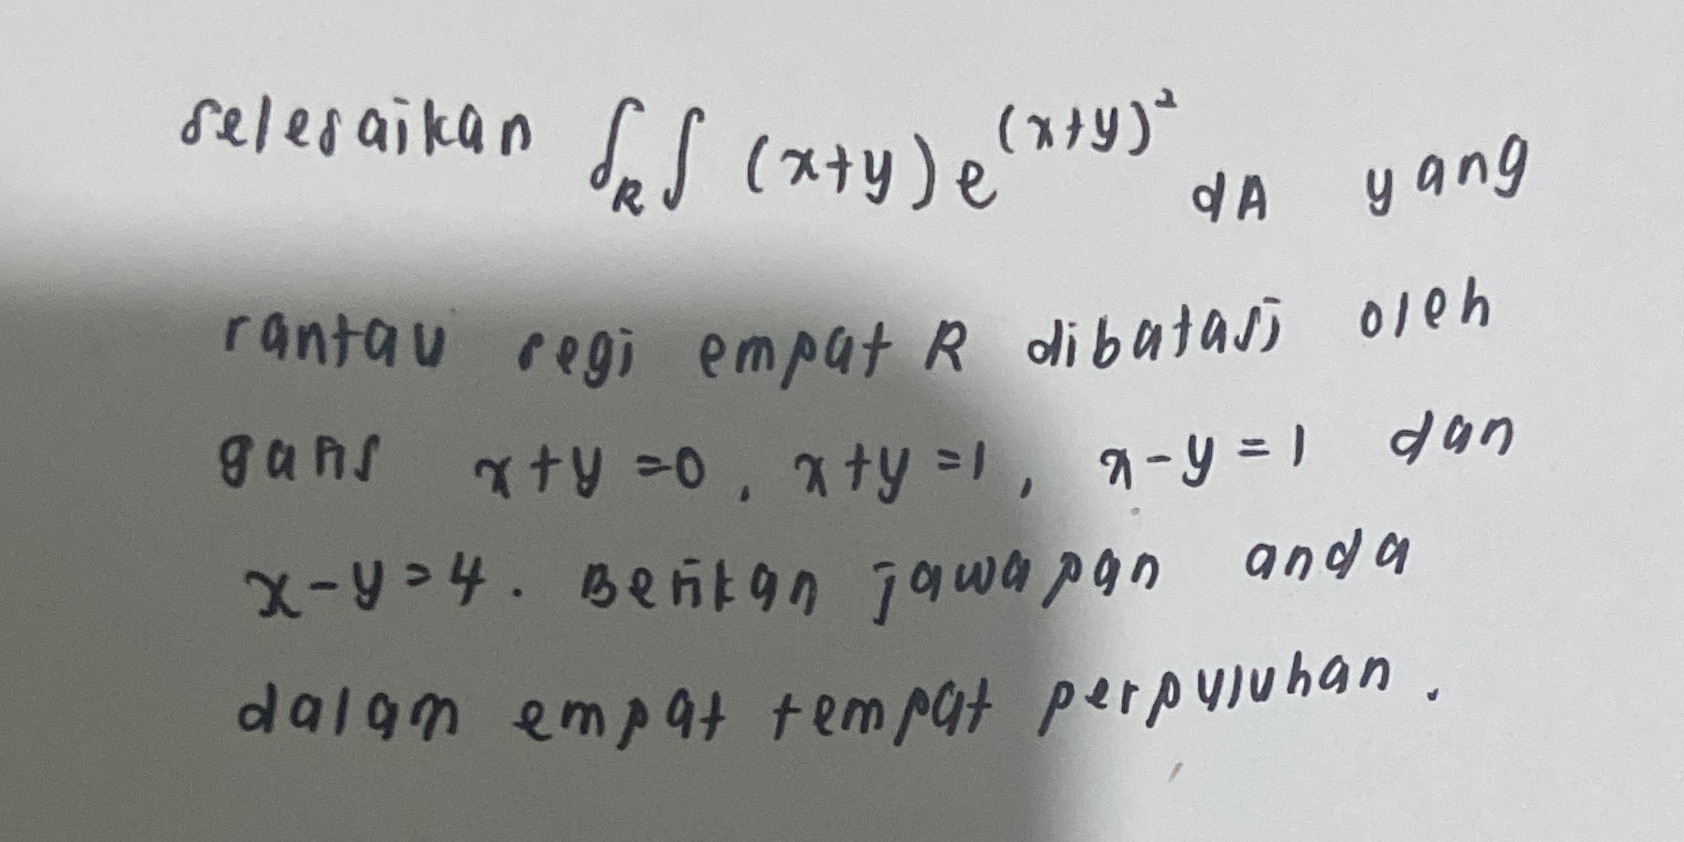 selesaikan ∫∫_R (x+y) e^(x+y)² dA yang
rantau segi empat R dibatasi oleh
garis x+y=0, x+y=1, x-y=1 dan
x-y=4. Berikan jawapan anda
dalam empat tempat perpuluhan.